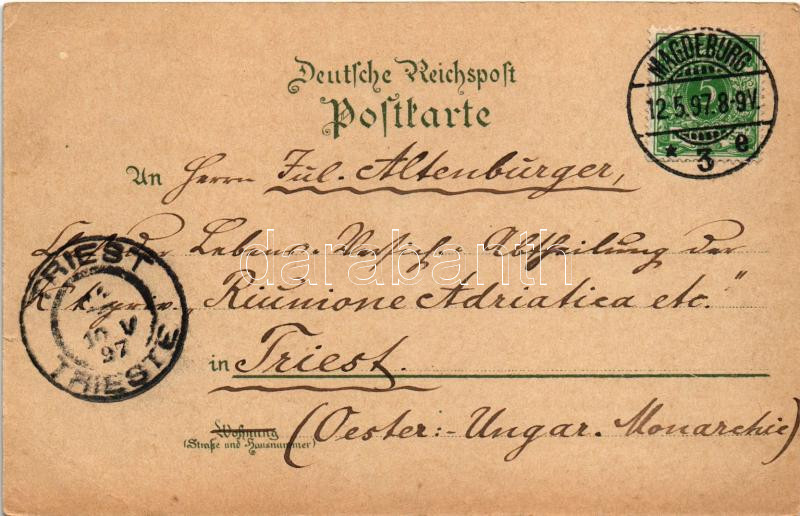 Deutsche Reichspost
Postkarte
MAGDEBURG
12.5.97.8-9V.
* 3 e
5
An Herrn Jul. Altenburger,
der Lebens-Versich: Abtheilung der
"Riunione Adriatica etc."
TRIEST
V
97
TRIESTE
in Triest.
Wohnung
(Straße und Hausnummer)
(Oester:-Ungar. Monarchie)
darabanth